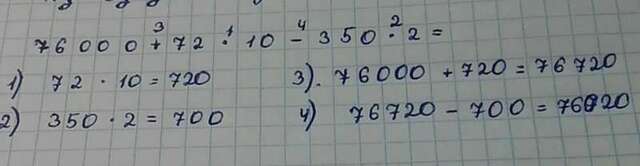 76000 + 72 · 10 - 350 · 2 =
3 1 4 2
1) 72 · 10 = 720
2) 350 · 2 = 700
3). 76000 + 720 = 76720
4) 76720 - 700 = 76020